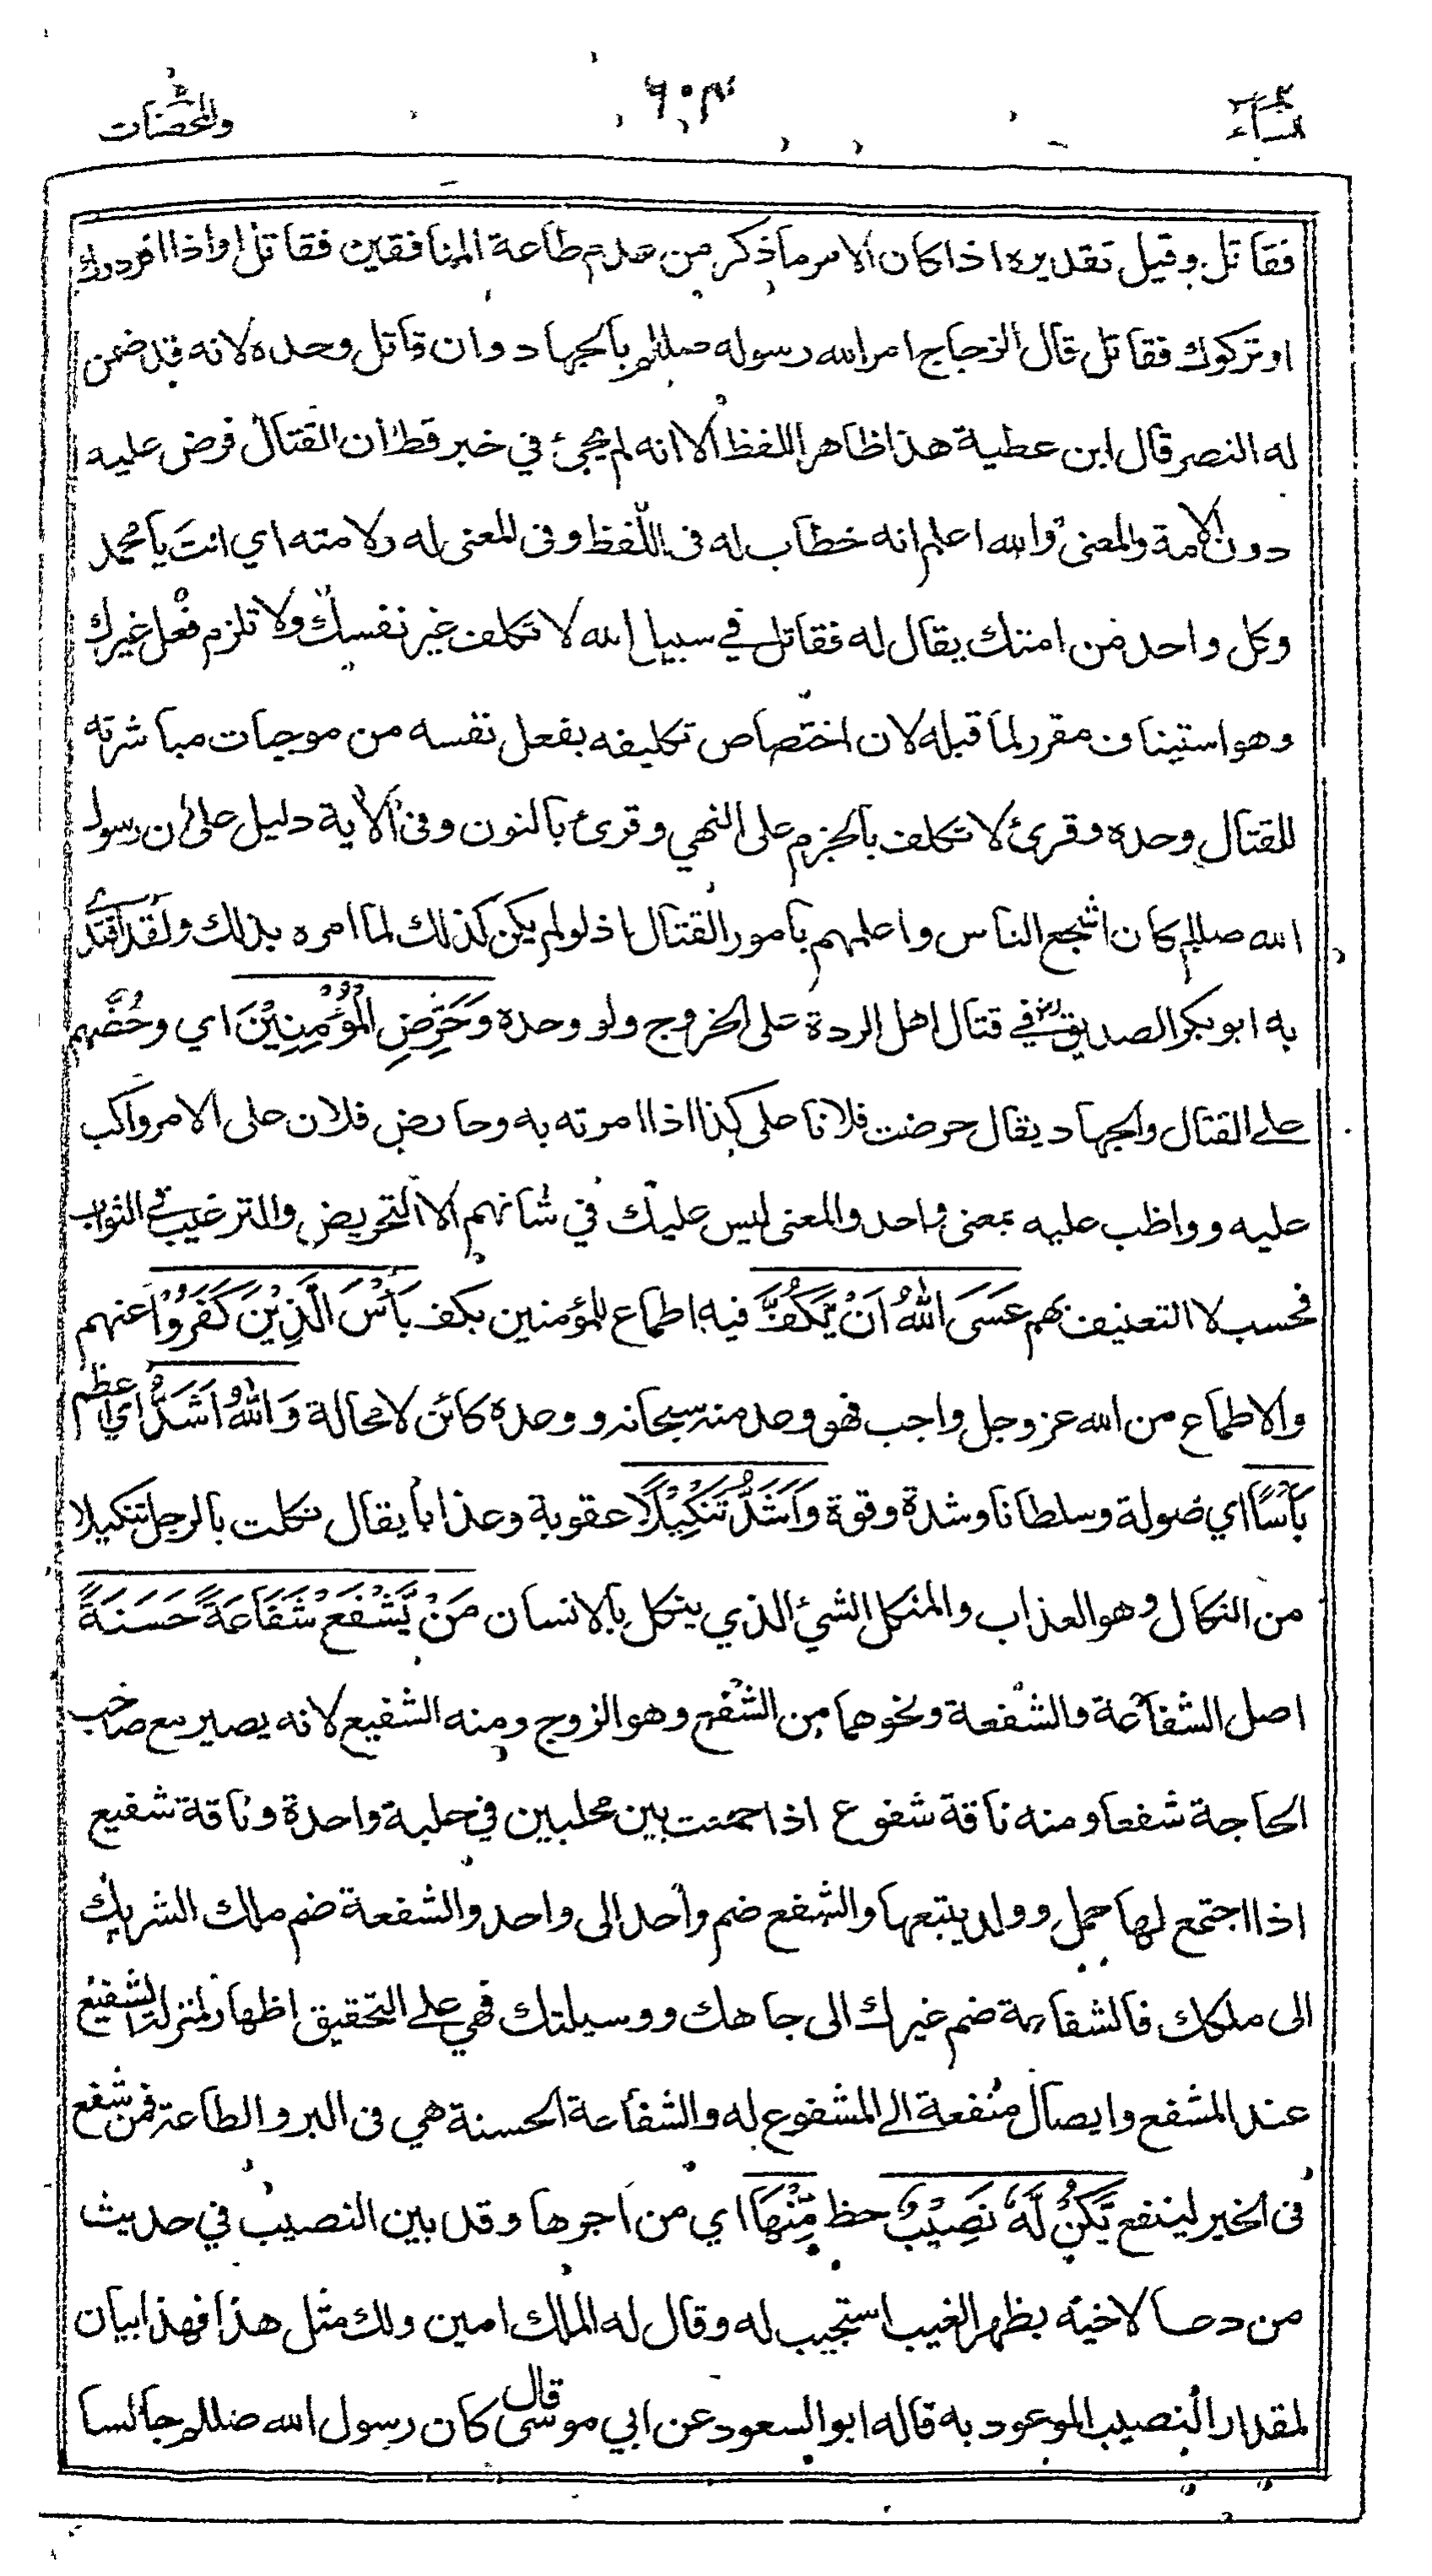 النساء ٦٠٣ والمحصنات
فقاتل وقيل تقديره اذا كان الامر ما ذكر من عدم طاعة المنافقين فقاتل او اذا افردوك
او تركوك فقاتل قال الزجاج امر الله رسوله صللم بالجهاد وان قاتل وحده لانه قد ضمن
له النصر قال ابن عطية هذا ظاهر اللفظ الا انه لم يجئ في خبر قط ان القتال فرض عليه
دون الامة والمعنى والله اعلم انه خطاب له في اللفظ وفي المعنى له ولامته اي انت يا محمد
وكل واحد من امتك يقال له فقاتل في سبيل الله لا تكلف غير نفسك ولا تلزم فعل غيرك
وهو استيناف مقرر لما قبله لان اختصاص تكليفه بفعل نفسه من موجبات مباشرته
للقتال وحده وقرئ لا تكلف بالجزم على النهي وقرئ بالنون وفي الآية دليل على ان رسول
الله صللم كان اشجع الناس واعلمهم بامور القتال اذ لو لم يكن كذلك لما امره بذلك ولقد اقتدى
به ابو بكر الصديق رض في قتال اهل الردة على الخروج ولو وحده وَحَرِّضِ الْمُؤْمِنِيْنَ اي وحُضَّهم
على القتال والجهاد يقال حرضت فلانا على كذا اذا امرته به وحارض فلان على الامر واكب
عليه وواظب عليه بمعنى واحد والمعنى ليس عليك في شانهم الا التحريض والترغيب في الثواب
فحسب لا التعنيف بهم عَسَى اللهُ اَنْ يَّكُفَّ فيه اطماع للمؤمنين بكف بَأْسَ الَّذِيْنَ كَفَرُوْا عنهم
والاطماع من الله عز وجل واجب فهو وعد منه سبحانه ووعده كائن لا محالة وَاللهُ اَشَدُّ اي اعظم
بَأْسًا اي صولة وسلطانا وشدة وقوة وَّاَشَدُّ تَنْكِيْلًا عقوبة وعذابا يقال نكلت بالرجل تنكيلا
من النكال وهو العذاب والمنكل الشيء الذي ينكل بالانسان مَنْ يَّشْفَعْ شَفَاعَةً حَسَنَةً
اصل الشفاعة والشفعة ونحوهما من الشفع وهو الزوج ومنه الشفيع لانه يصير مع صاحب
الحاجة شفعا ومنه ناقة شفوع اذا جمعت بين محلبين في حلبة واحدة وناقة شفيع
اذا اجتمع لها حمل وولد يتبعها والشفع ضم واحد الى واحد والشفعة ضم ملك الشريك
الى ملكك فالشفاعة ضم غيرك الى جاهك ووسيلتك فهي على التحقيق اظهار لمنزلة الشفيع
عند المشفع وايصال منفعة الى المشفوع له والشفاعة الحسنة هي في البر والطاعة فمن شفع
في الخير لينفع يَّكُنْ لَّهٗ نَصِيْبٌ حظ مِّنْهَا اي من اجرها وقد بين النصيب في حديث
من دعا لاخيه بظهر الغيب استجيب له وقال له الملك امين ولك مثل هذا فهذا بيان
لمقدار النصيب الموعود به قاله ابو السعود عن ابي موسى قال كان رسول الله صللم جالسا